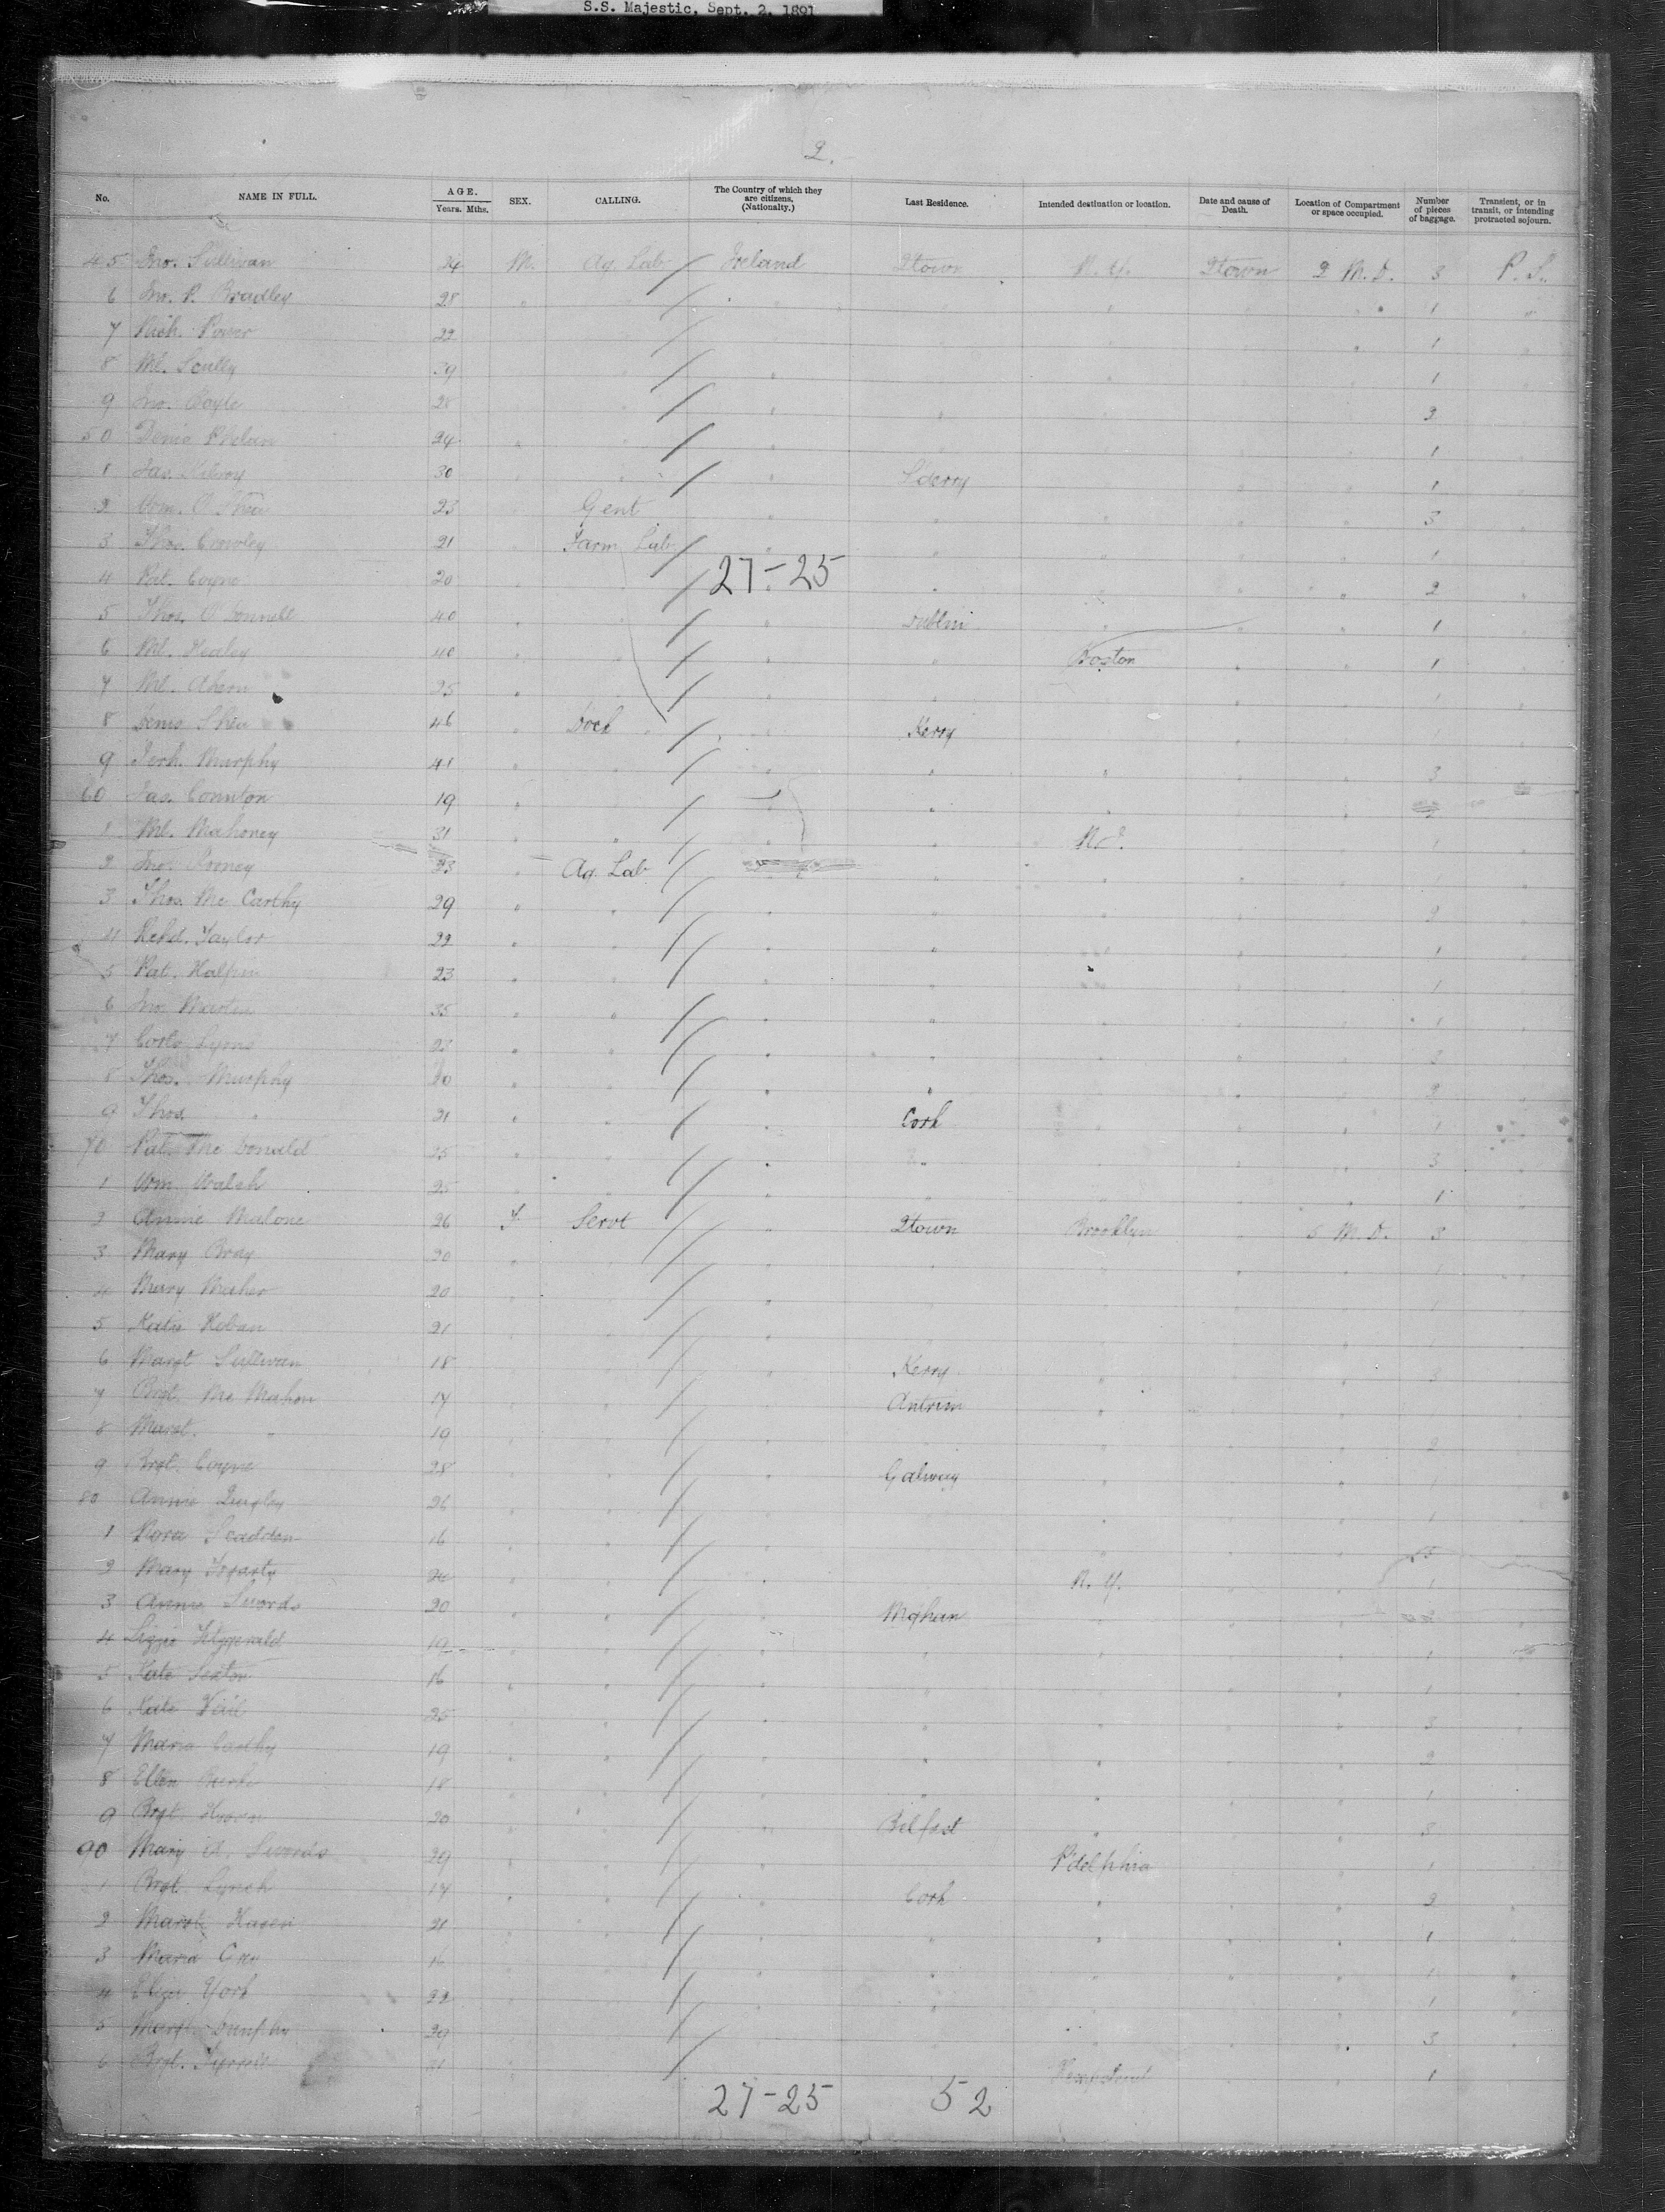 S.S. Majestic, Sept. 2, 1891
2.
No. NAME IN FULL. AGE. Years. Mths. SEX. CALLING. The Country of which they are citizens. (Nationalty.) Last Residence. Intended destination or location. Date and cause of Death. Location of Compartment or space occupied. Number of pieces of baggage. Transient, or in transit, or intending protracted sojourn.
45 Jno. Sullivan 24 M. Ag. Lab / Ireland Qtown N.Y. Qtown 2 M.D. 3 P.S.
6 Jno. P. Bradley 28 " / " 1 "
7 Power 22 / 1
8 Ml. Scully 39 / " 1
9 Jno. Doyle 28 / " 2
50 Denis Phelan 24 / " 1
1 Jas. Kilroy 30 / " L'derry 1
2 Wm. O'Shea 23 Gent " 3
3 Thos. Crowley 21 Farm Lab / " 1
4 Pat. Coyne 20 / 27-25 " 2
5 Thos. O'Donnell 40 / " Dublin 1
6 Ml. Healey 40 / " Boston 1
7 Ml. Ahern 25 / " 1
8 Denis Shea 46 Dock " / " Kerry 1
9 Jerh. Murphy 41 / " 3
60 Jas. 19 / "
1 Ml. Mahoney 31 / " 1
2 Jno. 23 Ag. Lab / "
3 Thos. Mc Carthy 29 / " 2
4 Richd. Taylor 22 / " 1
5 Pat. Halpin 23 / " 1
6 Jno. Martin 35 / " 1
7 23 / " 2
8 Thos. Murphy 20 / " 2
9 Thos. " 21 / " Cork 1
70 Pat. Mc Donald 25 / " 3
1 Wm. Walsh 25 / " 1
2 Annie Malone 26 F. Servt / " Qtown Brooklyn 5 M.D. 3
3 Mary Bray 20 / 1
4 Mary Meaher 20 / " 1
5 Katie Hoban 21 / " 1
6 Margt Sullivan 18 / " Kerry 3
7 Brgt. Mc Mahon 17 / " Antrim 1
8 Margt. " 19 / " 2
9 Brgt. Coyne 28 / " Galway 1
80 Annie Quigley 26 / " 1
1 Nora Scadden 16 / "
2 Mary Fogarty 24 / " N.Y. 1
3 Annie Swords 20 / " M'ghan 2
4 Lizzie Fitzgerald 19 / " 1
5 Kate Sexton 16 / " 1
6 Kate 25 / " 3
7 Maria Carthy 19 / " 2
8 Ellen 18 / " 1
9 Brgt. 20 / " Belfast 3
90 Mary A. Swords 29 / " P'delphia 1
1 Brgt. Lynch 17 / " Cork 2
2 Margt. 21 / " 1
3 Maria 16 / " 1
4 Eliza York 22 / " 1
5 Margt. Dunphy 29 / " 3
6 Brgt. 21 / 1
27-25 52